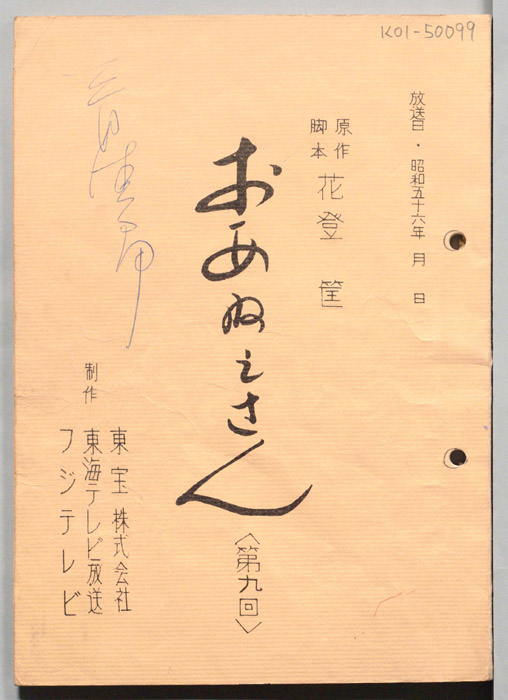 K01-50099
放送日・昭和五十六年 月 日
原作
脚本
花登 筐
おあねえさん
〈第九回〉
制作
東宝株式会社
東海テレビ放送
フジテレビ